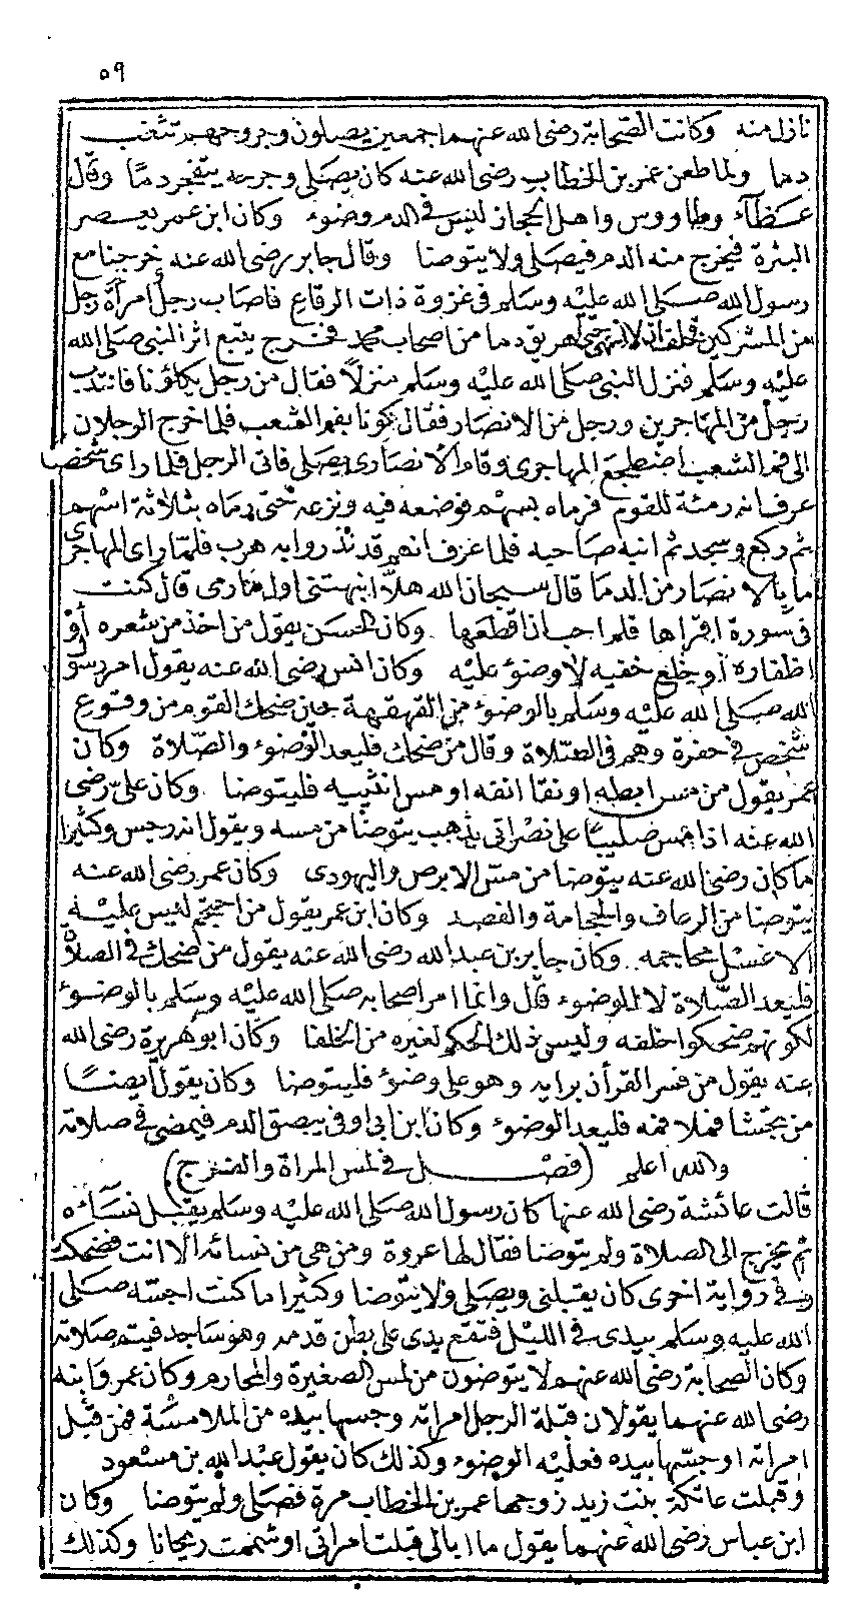 ٥٩
نازل منه وكانت الصحابة رضي الله عنهم اجمعين يصلون وجروحهم تثغب
دما ولما طعن عمر بن الخطاب رضي الله عنه كان يصلي وجرحه يتفجر دمًا وقال
عطآء وطاووس واهل الحجاز ليس في الدم وضوء وكان ابن عمر يعصر
البثرة فيخرج منه الدم فيصلي ولا يتوضا وقال جابر رضي الله عنه خرجنا مع
رسول الله صلى الله عليه وسلم في غزوة ذات الرقاع فاصاب رجل امرأة رجل
من المشركين فحلف ان لا انتهي حتى اهريق دما من اصحاب محمد فخرج يتبع اثر النبي صلى الله
عليه وسلم فنزل النبي صلى الله عليه وسلم منزلاً فقال من رجل يكلؤنا فانتدب
رجل من المهاجرين ورجل من الانصار فقال كونا بفم الشعب فلما خرج الرجلان
الى فم الشعب اضطجع المهاجري وقام الانصاري يصلي فاتى الرجل فلما راى شخصا
عرف انه رمئة للقوم فرماه بسهم فوضعه فيه ونزعه حتى رماه بثلاثة اسهم
ثم ركع وسجد ثم انبه صاحبه فلما عرف انهم قد نذروا به هرب فلما راى المهاجري
ما بالانصار من الدما قال سبحان الله هلاّ انبهتني اول ما رمى قال كنت
في سورة اقراها فلم احب ان اقطعها وكان الحسن يقول من اخذ من شعره أو
اظفاره او خلع خفيه لا وضوء عليه وكان انس رضي الله عنه يقول امر رسول
الله صلى الله عليه وسلم بالوضوء من القهقهة حين ضحك القوم من وقوع
شخص في حفرة وهم في الصلاة وقال من ضحك فليعد الوضوء والصلاة وكان
عمر يقول من مس ابطه او نقا انفه او مس انثييه فليتوضا وكان علي رضي
الله عنه اذا مس صليبًا على نصراني يذهب يتوضا من مسه ويقول انه رجس وكثيرا
ما كان رضي الله عنه يتوضا من مس الابرص واليهودي وكان عمر رضي الله عنه
يتوضا من الرعاف والحجامة والفصد وكان ابن عمر يقول من احتجم ليس عليه
الا غسل محاجمه وكان جابر بن عبد الله رضي الله عنه يقول من ضحك في الصلاة
فليعد الصلاة لا الوضوء قال وانما امر اصحابه صلى الله عليه وسلم بالوضوء
لكونهم ضحكوا خلفه وليس ذلك الحكم لغيره من الخلفا وكان ابو هريرة رضي الله
عنه يقول من فسر القرأن برايه وهو على وضوء فليتوضا وكان يقول ايضًا
من تجشا فملا فمه فليعد الوضوء وكان ابن ابي اوفى يبصق الدم فيمضي في صلاته
والله اعلم (فصل في لمس المراة والفرج)
قالت عائشة رضي الله عنها كان رسول الله صلى الله عليه وسلم يقبل نساءه
ثم يخرج الى الصلاة ولم يتوضا فقال لها عروة ومن هي من نسائه الا انت فضحكت
وفي رواية اخرى كان يقبلني ويصلي ولا يتوضا وكثيرا ما كنت اجسه صلى
الله عليه وسلم بيدي في الليل فتقع يدي على بطن قدمه وهو ساجد فيتم صلاته
وكان الصحابة رضي الله عنهم لا يتوضون من لمس الصغيرة والمحارم وكان عمر وابنه
رضي الله عنهما يقولان قبلة الرجل امراته وجسها بيده من الملامسة فمن قبل
امراته او جسها بيده فعليه الوضوء وكذلك كان يقول عبد الله بن مسعود
وقبلت عاتكة بنت زيد زوجها عمر بن الخطاب مرة فصلى ولم يتوضا وكان
ابن عباس رضي الله عنهما يقول ما ابالي قبلت امراتي او شممت ريحانا وكذلك